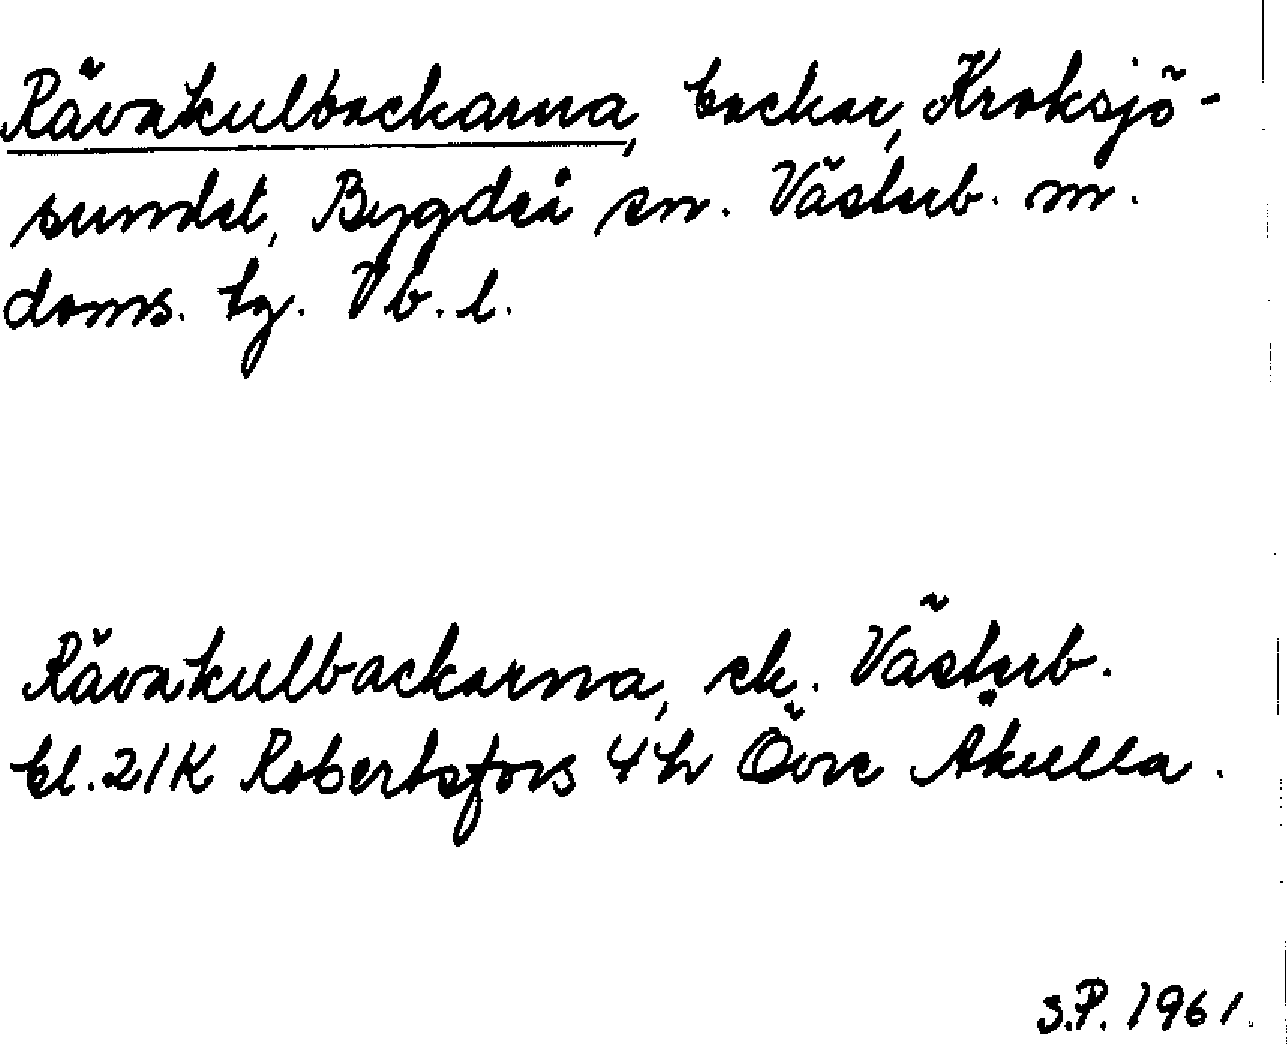 Rävakulbackarna, backar, Kroksjö-
sundet, Bygdeå sn. Västerb. m.
doms. tg. Vb. l.
Rävakulbackarna, ek. Västerb.
bl. 21K Robertsfors 4h Övre Åkulla.
S.P. 1961.